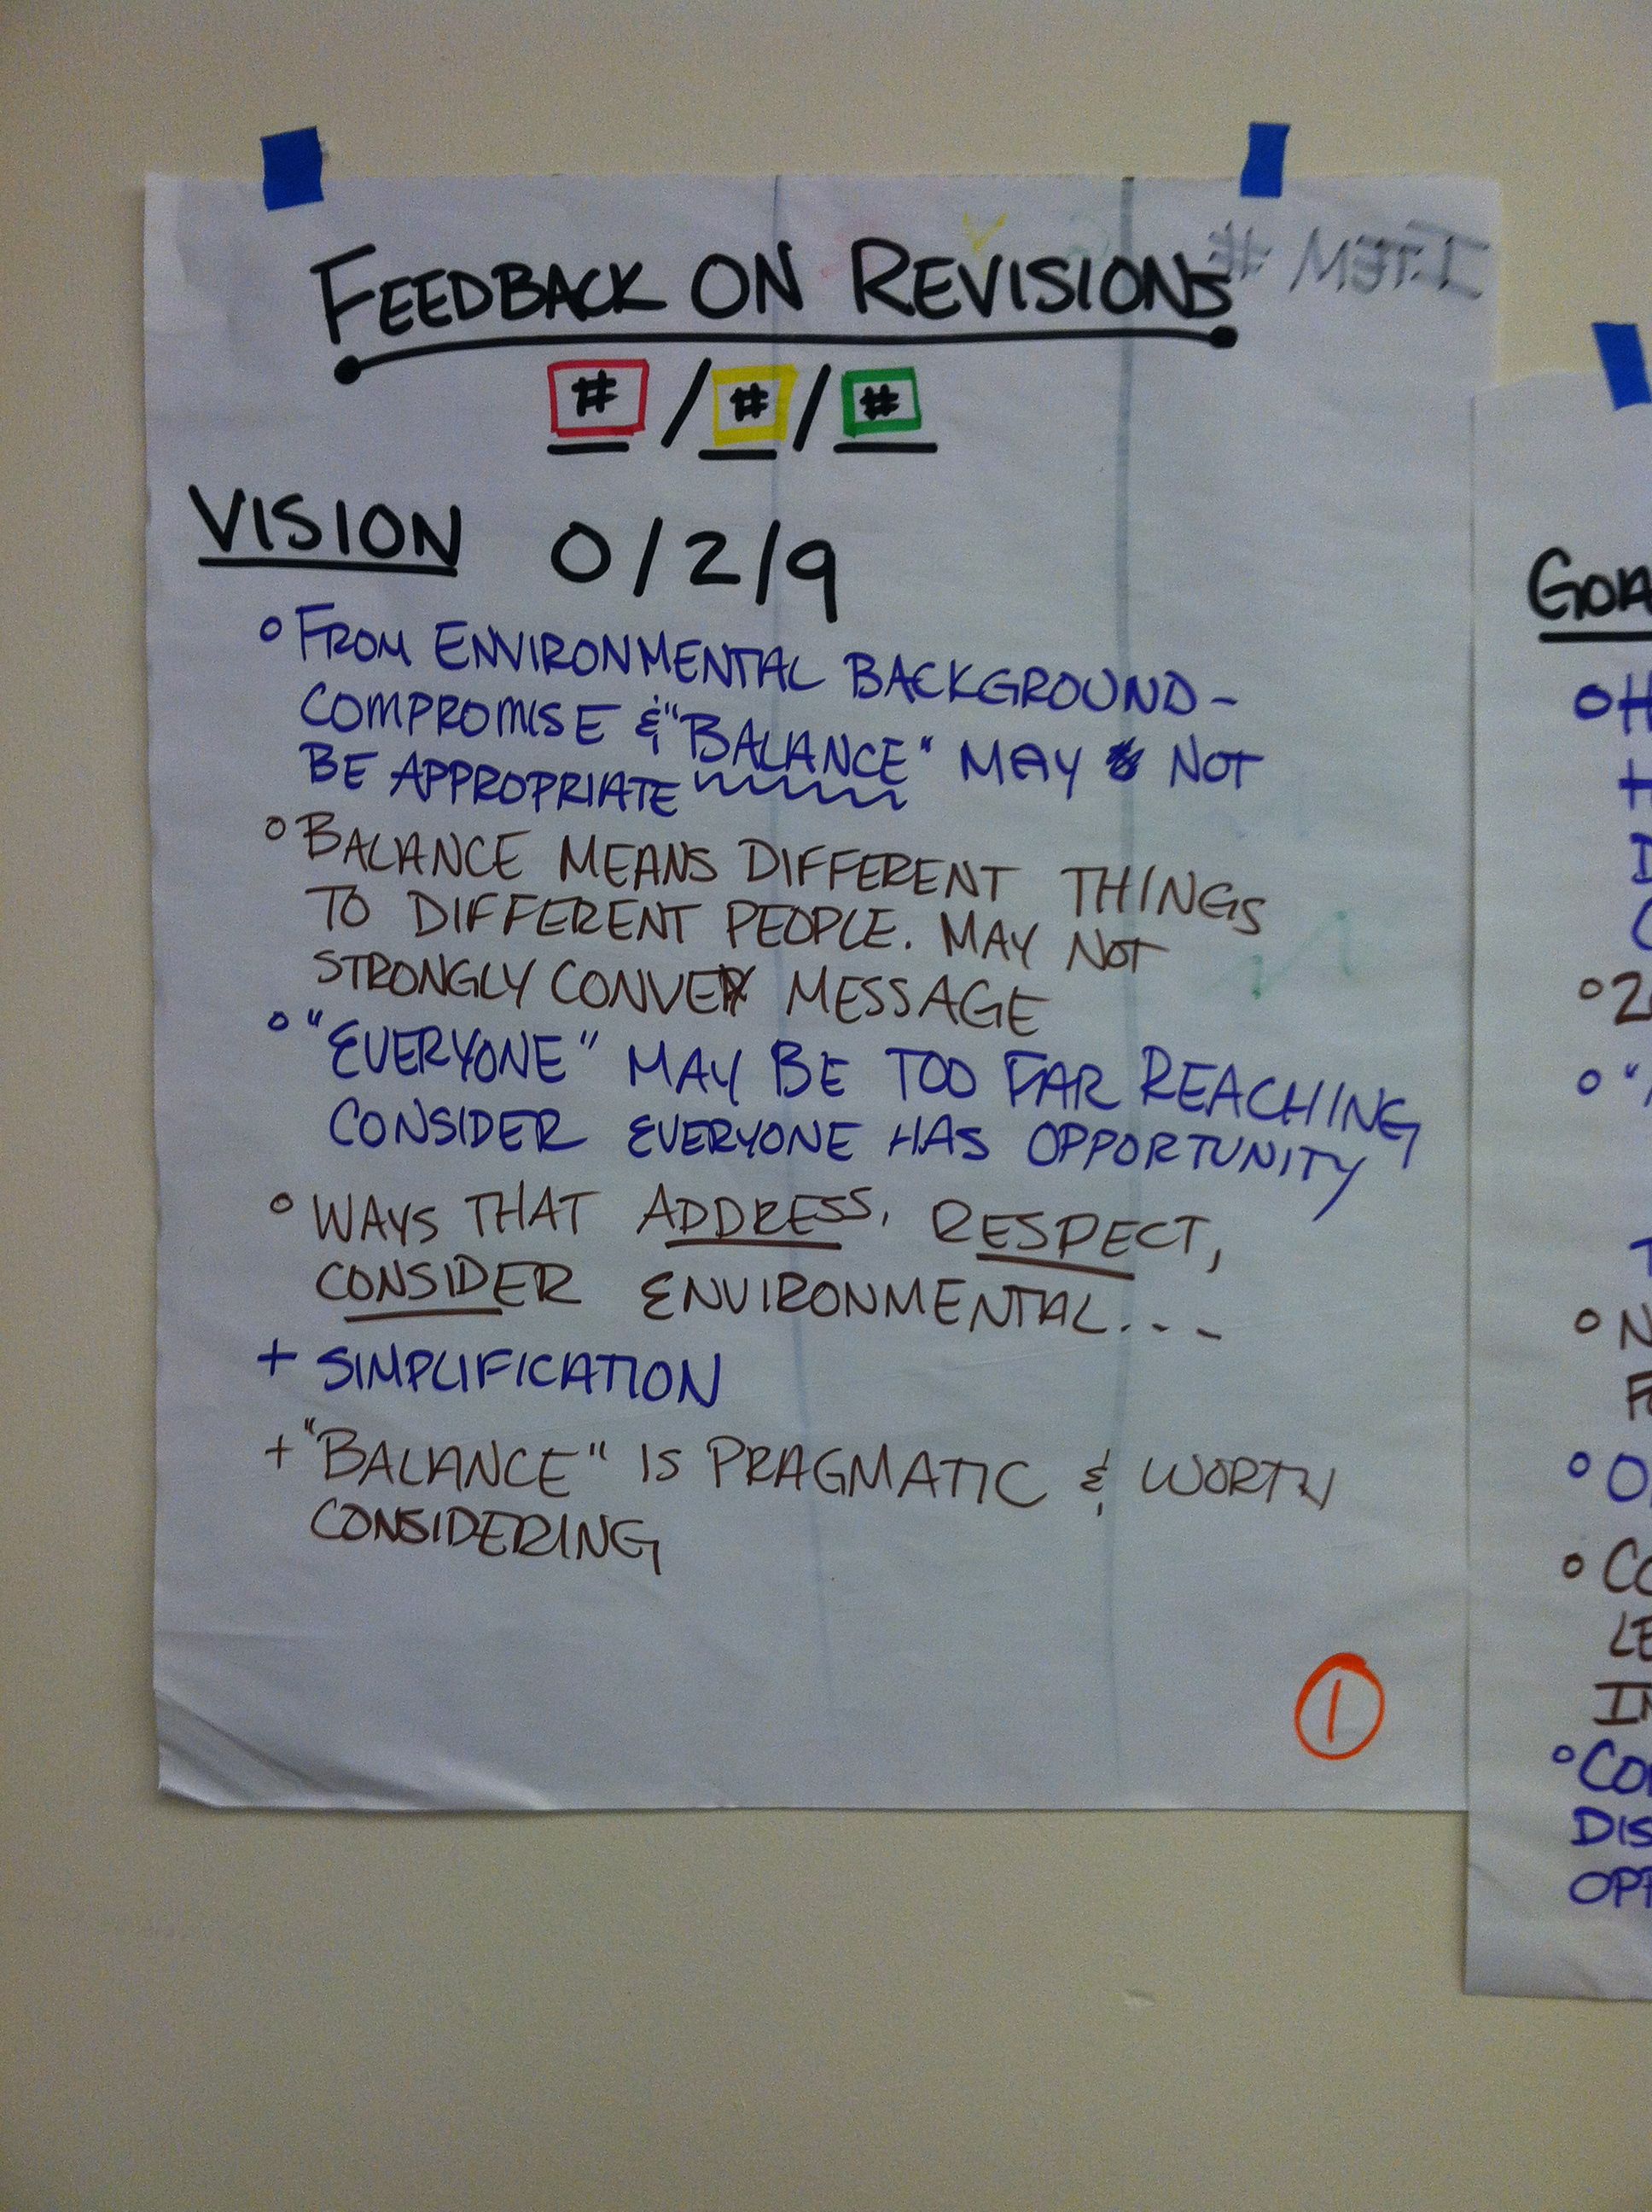 FEEDBACK ON REVISIONS
ITEM #
# / # / #
VISION 0/2/9
° FROM ENVIRONMENTAL BACKGROUND -
COMPROMISE & "BALANCE" MAY NOT
BE APPROPRIATE
° BALANCE MEANS DIFFERENT THINGS
TO DIFFERENT PEOPLE. MAY NOT
STRONGLY CONVEY MESSAGE
° "EVERYONE" MAY BE TOO FAR REACHING
CONSIDER EVERYONE HAS OPPORTUNITY
° WAYS THAT ADDRESS, RESPECT,
CONSIDER ENVIRONMENTAL...
+ SIMPLIFICATION
+ "BALANCE" IS PRAGMATIC & WORTH
CONSIDERING
1